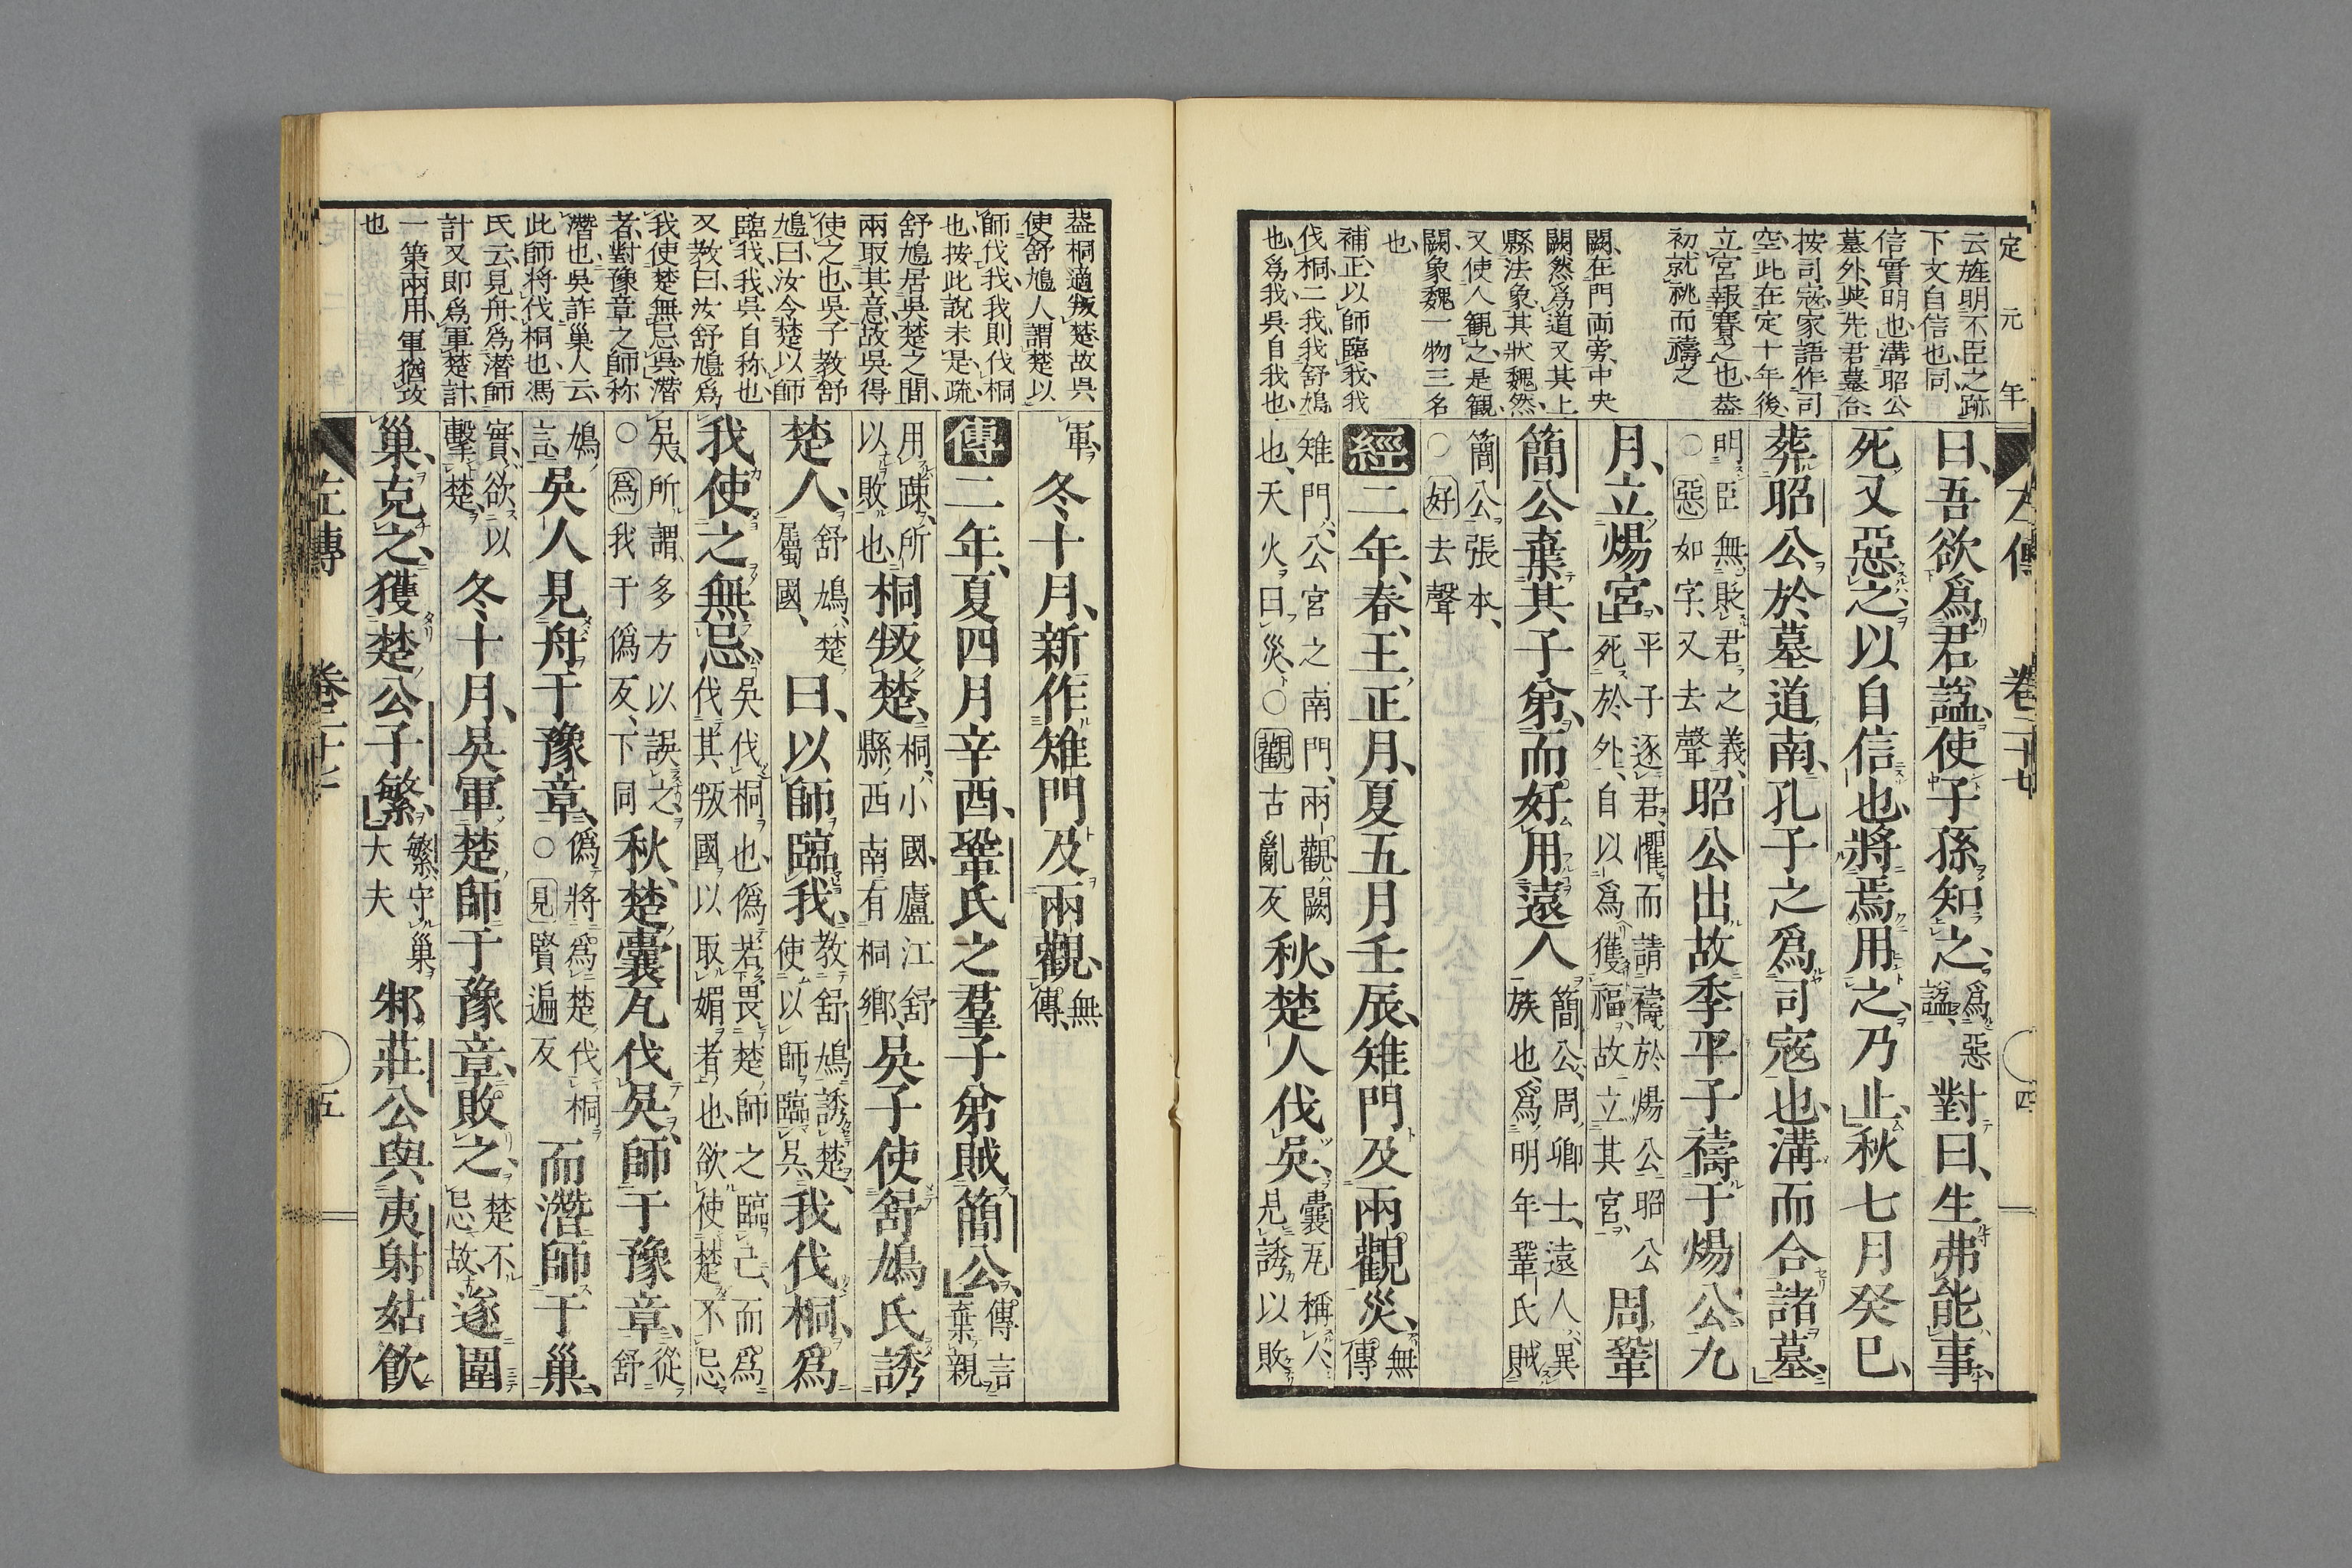 定元年
云旌明不臣之跡
下文自信也同
信實明也溝昭公
墓外與先君墓合
按司寇家語作司
空此在定十年後
立宮報賽之也葢
初就祧而禱之
闕在門両旁中央
闕然爲道又其上
縣法象其狀魏然
又使人觀之是觀
闕象魏一物三名
也
補正以師臨我我
伐桐二我我舒鳩
也爲我吳自我也
左傳 卷二十七 四
曰、吾欲爲君謚、使子孫知之、爲惡謚、對曰、生弗能事、
死又惡之、以自信也、將焉用之、乃止、秋七月癸巳、
葬昭公於墓道南、孔子之爲司寇也、溝而合諸墓、
明臣無貶君之義、○惡如字、又去聲 昭公出、故季平子禱于煬公、九
月、立煬宮、平子逐君、懼而請禱於煬公、昭公死於外、自以爲獲福、故立其宮、周鞏
簡公棄其子弟、而好用遠人、簡公、周卿士、遠人、異族也、爲明年鞏氏賊
簡公張本、○好去聲
經二年、春、王正月、夏五月壬辰、雉門及兩觀災、無傳
雉門、公宮之南門、兩觀、闕也、天火曰災、○觀古亂反 秋、楚人伐吳、囊瓦稱人、見誘以敗
葢桐適叛楚故呉
使舒鳩人謂楚以
師伐我我則伐桐
也按此說未是疏
舒鳩居吳楚之間
兩取其意故吳得
使之也吳子教舒
鳩曰汝令楚以師
臨我我吳自称也
又教曰汝舒鳩爲
我使楚無忌吳潛
者對豫章之師称
潛也吳詐巢人云
此師将伐桐也馮
氏云見舟爲潜師
計又即爲軍楚計
一策兩用軍猶攻
也
軍、冬十月、新作雉門及兩觀、無傳、
傳二年、夏四月辛酉、鞏氏之羣子弟賊簡公、傳言棄親
用踈、所以敗也、桐叛楚、桐、小國、廬江舒縣西南有桐鄉、吳子使舒鳩氏誘
楚人、舒鳩、楚屬國、曰、以師臨我、教舒鳩誘楚、使以師臨吳、我伐桐、爲
我使之無忌、吳伐桐也、僞若畏楚師之臨己、而爲伐其叛國以取媚者也、欲使楚不忌
吳、所謂多方以誤之、○爲我于僞反、下同 秋、楚囊瓦伐吳、師于豫章、從舒
鳩言、吳人見舟于豫章、僞將爲楚伐桐○見賢遍反 而潛師于巢、
實欲以擊楚、冬十月、吳軍楚師于豫章、敗之、楚不忌故、遂圍
巢、克之、獲楚公子繁、繁、守巢大夫 邾莊公與夷射姑飮
左傳 卷二十七 五